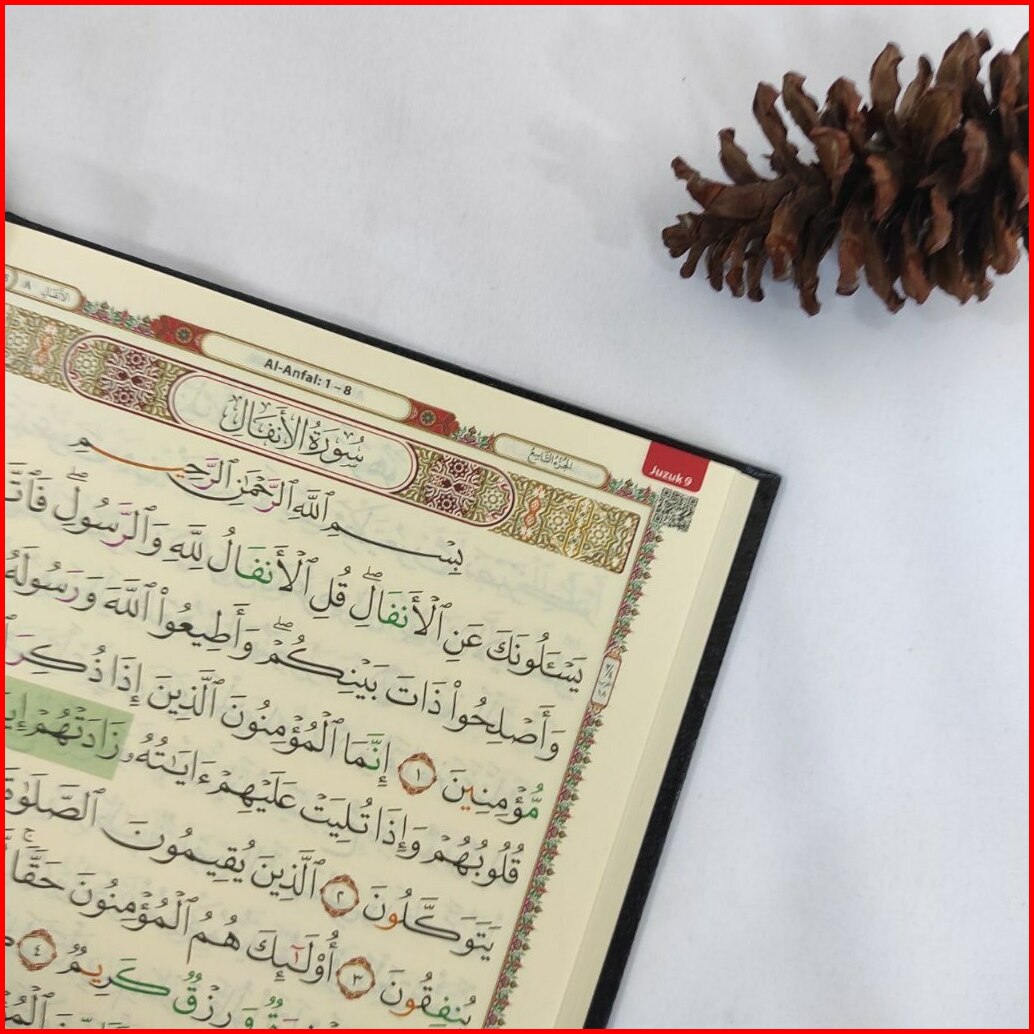 الأنفال ٨
Al-Anfal: 1 – 8
الجزء التاسع
Juzuk 9
سُورَةُ الأَنفَالِ
بِسۡمِ ٱللَّهِ ٱلرَّحۡمَٰنِ ٱلرَّحِيمِ
يَسۡـَٔلُونَكَ عَنِ ٱلۡأَنفَالِۖ قُلِ ٱلۡأَنفَالُ لِلَّهِ وَٱلرَّسُولِۖ
وَأَصۡلِحُواْ ذَاتَ بَيۡنِكُمۡۖ وَأَطِيعُواْ ٱللَّهَ وَرَسُولَهُ
مُّؤۡمِنِينَ ١ إِنَّمَا ٱلۡمُؤۡمِنُونَ ٱلَّذِينَ إِذَا ذُكِرَ
قُلُوبُهُمۡ وَإِذَا تُلِيَتۡ عَلَيۡهِمۡ ءَايَٰتُهُۥ زَادَتۡهُمۡ
يَتَوَكَّلُونَ ٢ ٱلَّذِينَ يُقِيمُونَ ٱلصَّلَوٰةَ
يُنفِقُونَ ٣ أُوْلَٰٓئِكَ هُمُ ٱلۡمُؤۡمِنُونَ حَقّٗاۚ
وَرِزۡقٞ كَرِيمٞ ٤